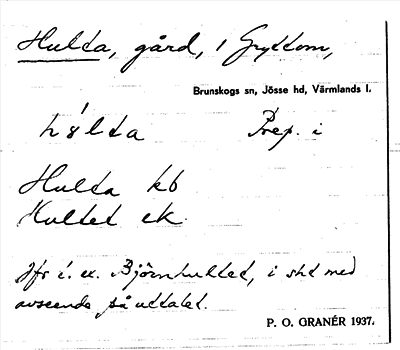 Hulta, gård, i Gryttom,
Brunskogs sn, Jösse hd, Värmlands l.
Prep. i
Hulta kb
Hultet ek
Jfr t. ex. Björnhultet, i sht med
avseende på uttalet.
P. O. GRANÉR 1937.